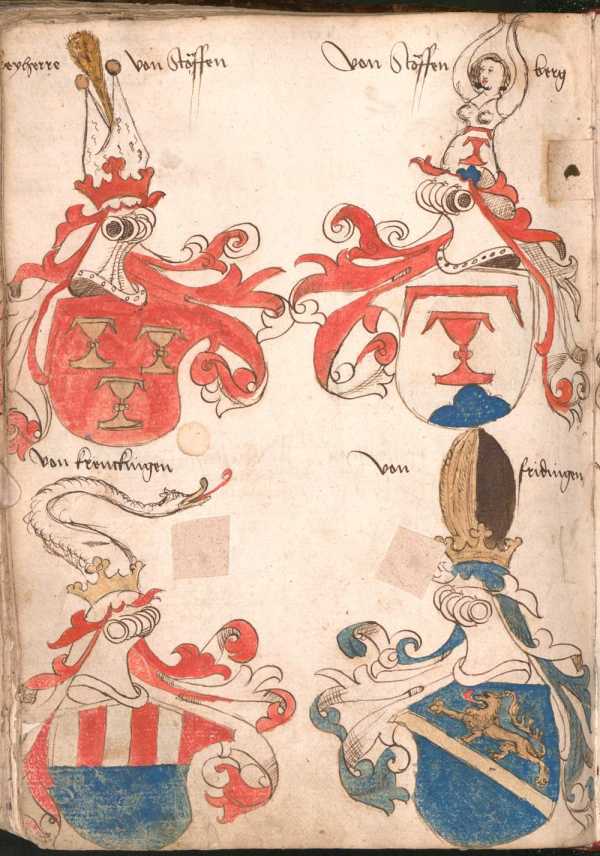 von Stöffen
Von Stöffen berg
von krenckingen
von fridingen